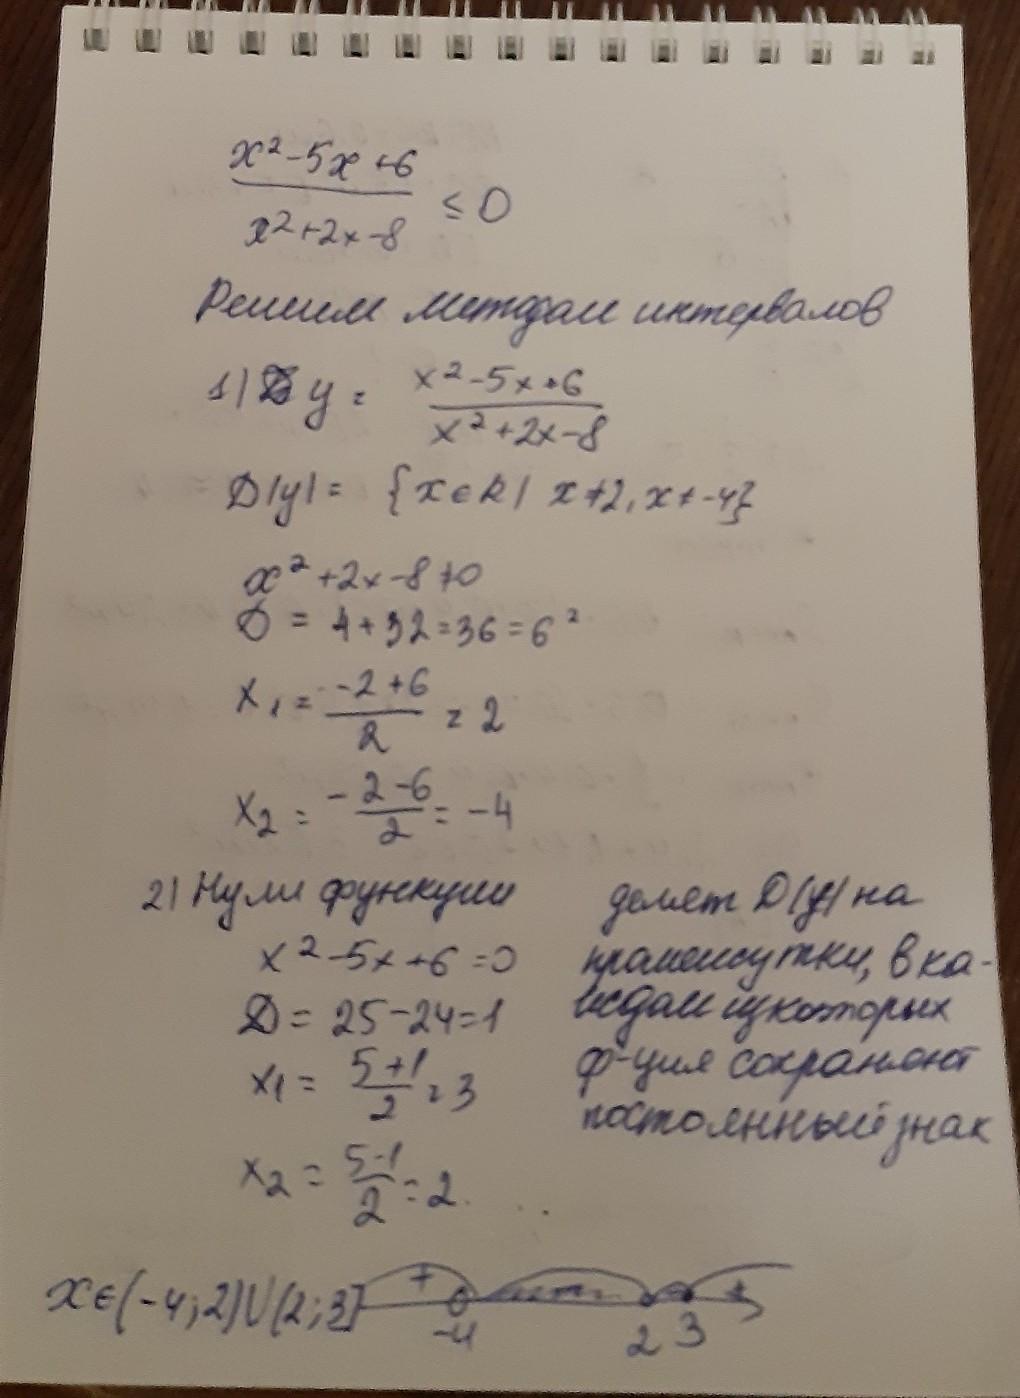 x²-5x+6
x²+2x-8
≤ 0
Решим методом интервалов
1) y = x²-5x+6
x²+2x-8
D(y) = {x∈R | x≠2, x≠-4}
x²+2x-8≠0
D = 4+32=36=6²
x₁ = -2+6
2
= 2
x₂ = -2-6
2
= -4
2) Нули функции
x²-5x+6=0
D = 25-24=1
x₁ = 5+1
2
= 3
x₂ = 5-1
2
= 2.
делят D(y) на
промежутки, в ка-
ждом из которых
ф-ция сохраняют
постоянный знак
x∈(-4;2)∪(2;3]
+ +
-4 2 3